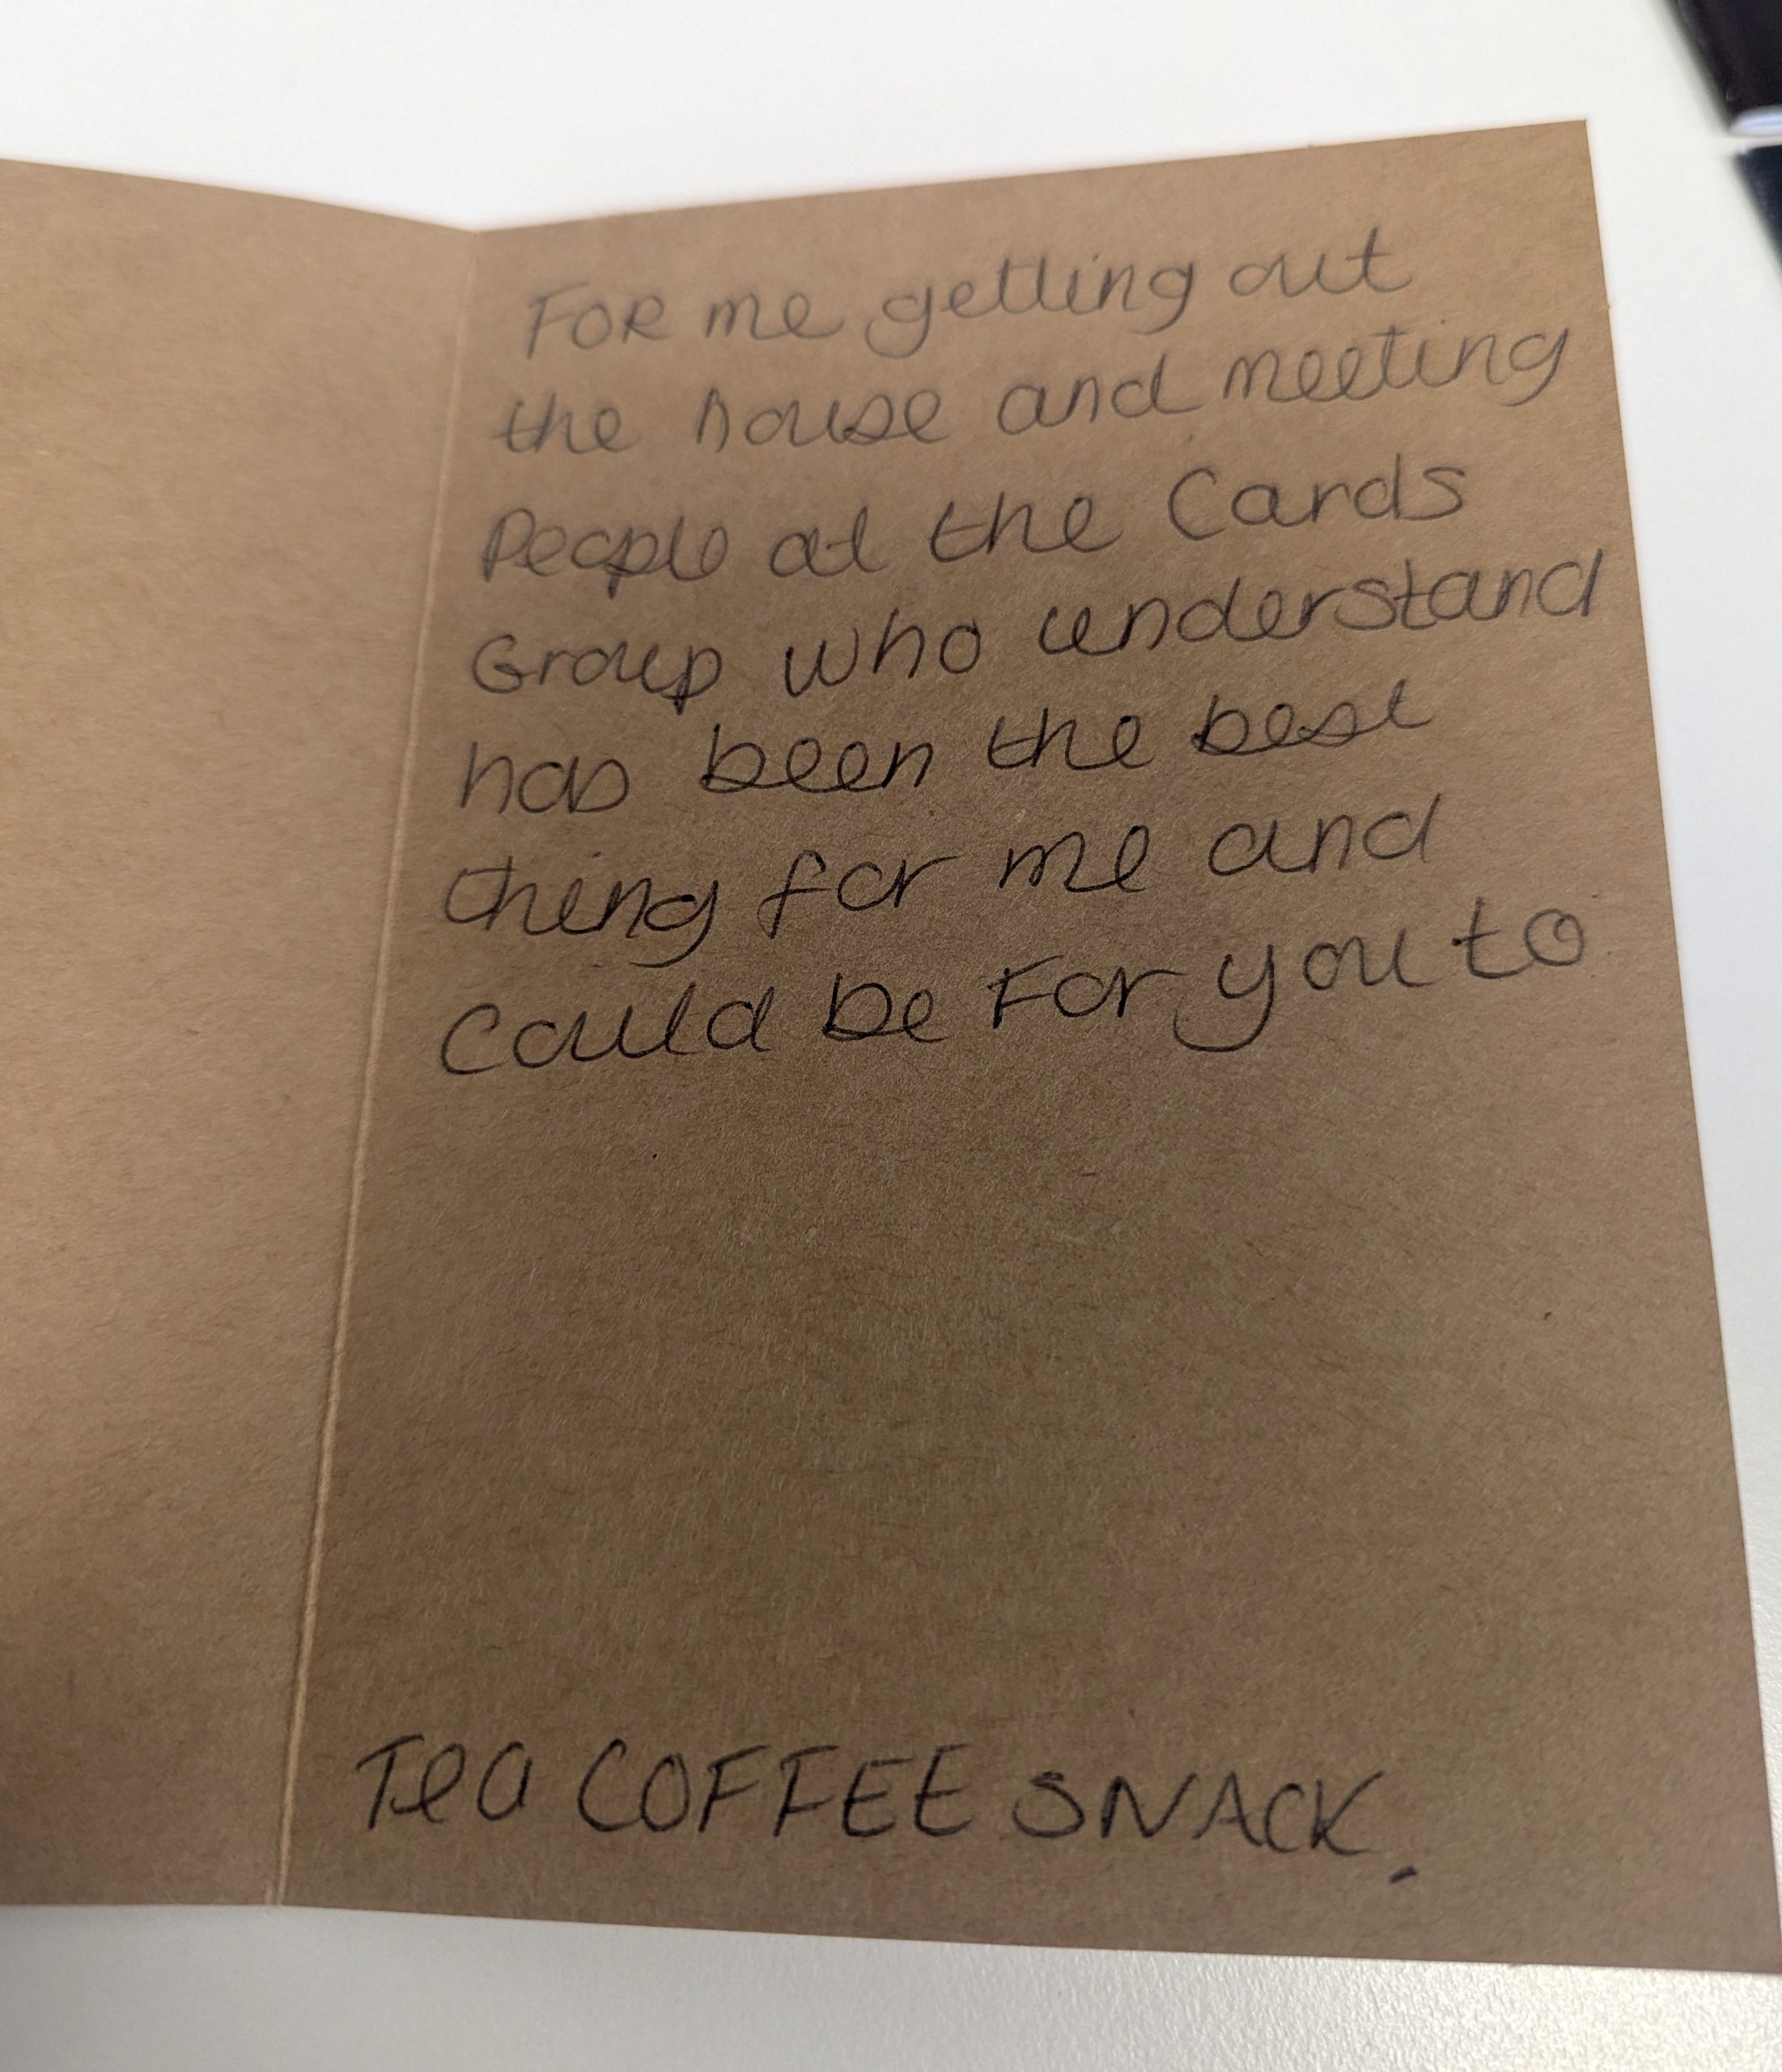 FOR me getting out
the house and meeting
People at the Cards
Group who understand
has been the best
thing for me and
Could be For you to
Tea COFFEE SNACK.